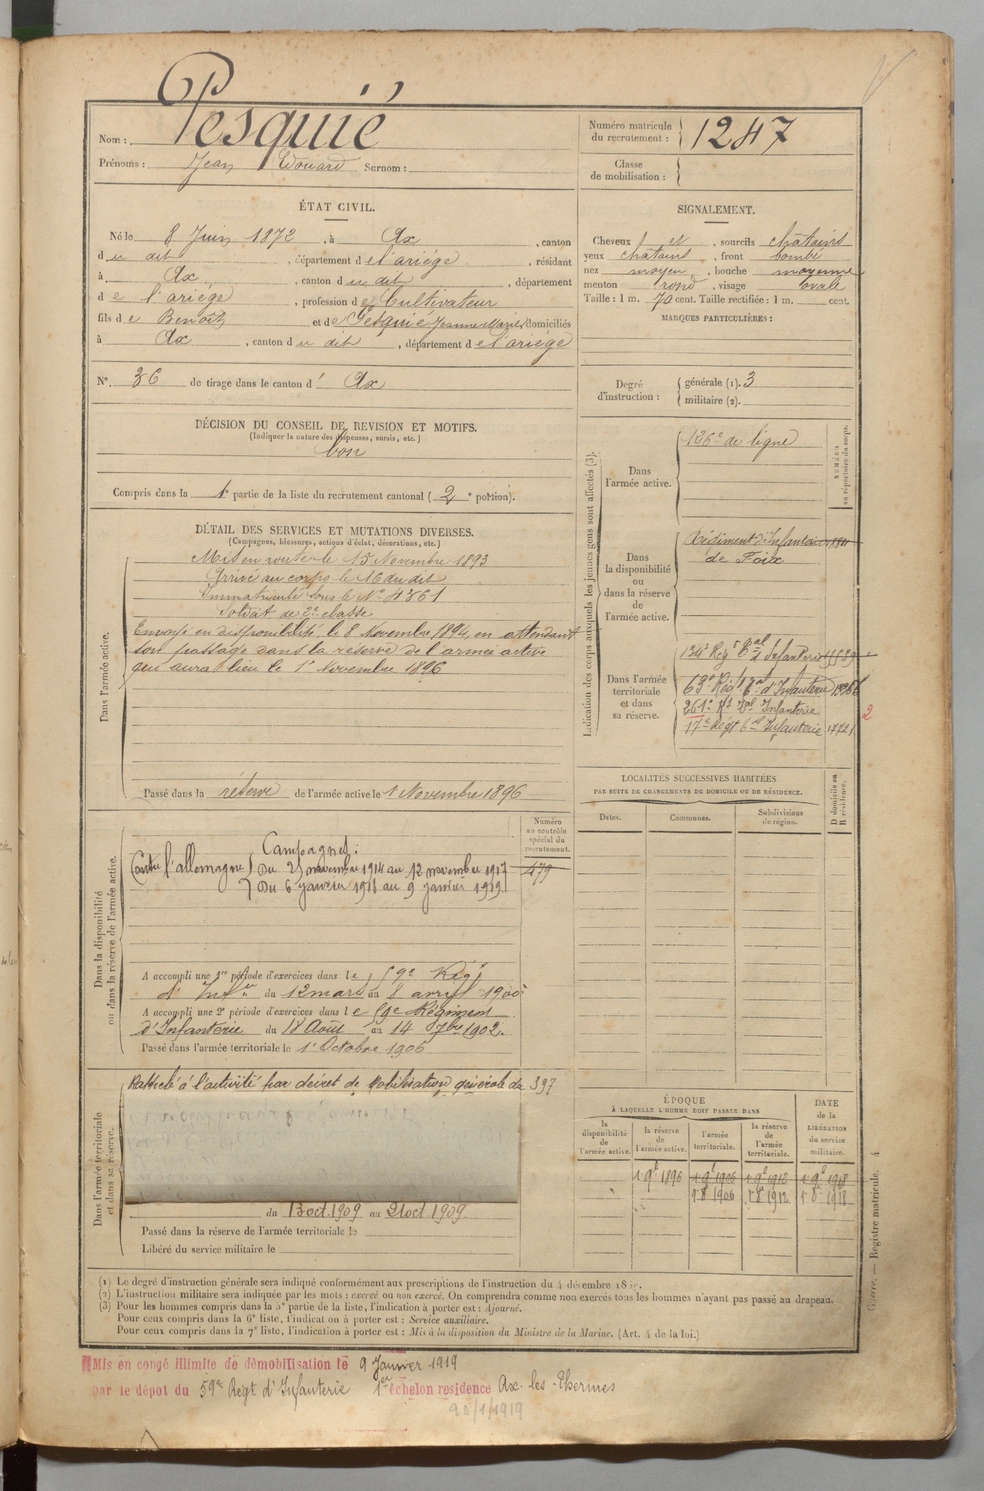 Nom : Pesquié
Prénoms : Jean Edouard Surnom :
Numéro matricule du recrutement : 1247
Classe de mobilisation :
ÉTAT CIVIL.
Né le 8 Juin 1872, à Ax, canton
du dit, département de l'ariège, résidant
à Ax, canton du dit, département
de l'ariège, profession de Cultivateur
fils de Benoît et de Pesquié Jeanne Marie, domiciliés
à Ax, canton du dit, département de l'ariège
N° 36 de tirage dans le canton d' Ax
SIGNALEMENT.
Cheveux et, sourcils châtains
yeux châtains, front bombé
nez moyen, bouche moyenne
menton rond, visage ovale
Taille : 1 m. 70 cent. Taille rectifiée : 1 m. cent.
MARQUES PARTICULIÈRES :
Degré d'instruction : générale (1). 3
militaire (2).
DÉCISION DU CONSEIL DE REVISION ET MOTIFS.
(Indiquer la nature des dispenses, sursis, etc.)
bon
Compris dans la 1e partie de la liste du recrutement cantonal ( 2 e portion).
DÉTAIL DES SERVICES ET MUTATIONS DIVERSES.
(Campagnes, blessures, actions d'éclat, décorations, etc.)
Dans l'armée active.
Mis en route le 15 Novembre 1893
Arrivé au corps le 16 du dit
Immatriculé sous le N° 4361
Soldat de 2e classe
Envoyé en disponibilité le 8 Novembre 1894, en attendant
son passage dans la réserve de l'armée active
qui aura lieu le 1er Novembre 1896
Passé dans la réserve de l'armée active le 1 Novembre 1896
Indication des corps auxquels les jeunes gens sont affectés (3).
Dans l'armée active.
126e de ligne
NUMÉRO au répertoire du corps.
Dans la disponibilité ou dans la réserve de l'armée active.
Régiment d'Infanterie
de Foix
Dans l'armée territoriale et dans sa réserve.
134e Rég t al d'Infanterie
63e Rég t al d'Infanterie
261e Rt al Infanterie
17e Regt al Infanterie
2
LOCALITÉS SUCCESSIVES HABITÉES
PAR SUITE DE CHANGEMENTS DE DOMICILE OU DE RÉSIDENCE.
Dates. Communes. Subdivisions de région. D domicile ou R résidence.
Dans la disponibilité ou dans la réserve de l'armée active.
Numéro au contrôle spécial du recrutement.
479
Campagnes :
Contre l'allemagne Du 25 novembre 1914 au 12 novembre 1917
Du 6 janvier 1918 au 9 janvier 1919
A accompli une 1re période d'exercices dans le 59e Régt
d'Infie du 12 mars au 8 avril 1900
A accompli une 2e période d'exercices dans le 59e Régiment
d'Infanterie du 18 Août au 14 7bre 1902.
Passé dans l'armée territoriale le 1er Octobre 1906
Dans l'armée territoriale et dans sa réserve.
Rappelé à l'activité par décret de Mobilisation générale du 397
du 13 oct. 1909 au 21 oct 1909.
Passé dans la réserve de l'armée territoriale le
Libéré du service militaire le
ÉPOQUE
À LAQUELLE L'HOMME DOIT PASSER DANS
la disponibilité de l'armée active. la réserve de l'armée active. l'armée territoriale. la réserve de l'armée territoriale. DATE de la LIBÉRATION du service militaire.
1 9e 1896 1 9e 1906 1 9e 1912 1 9e 1918
1er 8e 1906 1er 8e 1912 1er 8e 1918
(1) Le degré d'instruction générale sera indiqué conformément aux prescriptions de l'instruction du 4 décembre
(2) L'instruction militaire sera indiquée par les mots : exercé ou non exercé. On comprendra comme non exercés tous les hommes n'ayant pas passé au drapeau.
(3) Pour les hommes compris dans la 5e partie de la liste, l'indication à porter est : Ajourné.
Pour ceux compris dans la 6e liste, l'indication à porter est : Service auxiliaire.
Pour ceux compris dans la 7e liste, l'indication à porter est : Mis à la disposition du Ministre de la Marine. (Art. 4 de la loi.)
Guerre. — Registre matricule. 4
Mis en congé illimité de démobilisation le 9 Janvier 1919
par le dépôt du 59e Regt d'Infanterie 1er échelon residence Ax-les-Thermes
20/1/1919